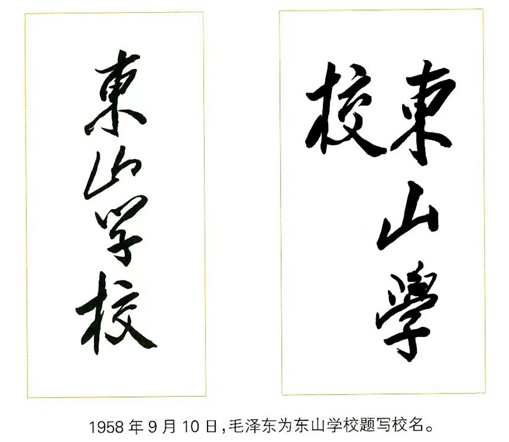 東山学校
東山學
校
1958年9月10日,毛泽东为东山学校题写校名。